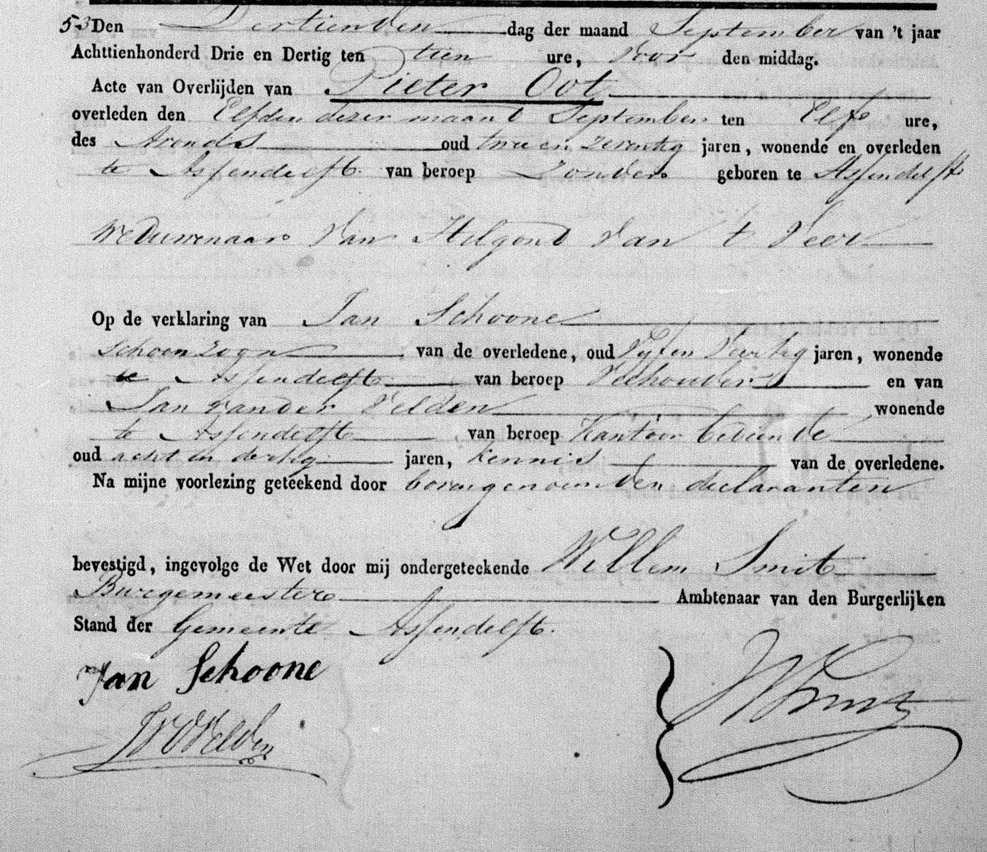 53 Den Dertienden dag der maand September van 't jaar
Achttienhonderd Drie en Dertig ten tien ure, voor den middag.
Acte van Overlijden van Pieter Oot
overleden den Elfden dezer maand September ten Elf ure,
des Avonds oud twee en zeventig jaren, wonende en overleden
te Assendelft van beroep Zonder geboren te Assendelft
Weduwenaar van Hilgond van t Veer
Op de verklaring van Jan Schoone
schoonzoon van de overledene, oud Vijf en Veertig jaren, wonende
te Assendelft van beroep Veehouder en van
Jan van der Velden wonende
te Assendelft van beroep Kantoor bediende
oud acht en dertig jaren, kennis van de overledene.
Na mijne voorlezing geteekend door bovengenoemden declaranten
bevestigd, ingevolge de Wet door mij ondergeteekende Willem Smit
Burgemeester Ambtenaar van den Burgerlijken
Stand der Gemeente Assendelft.
Jan Schoone
JVDVelden
WSmit